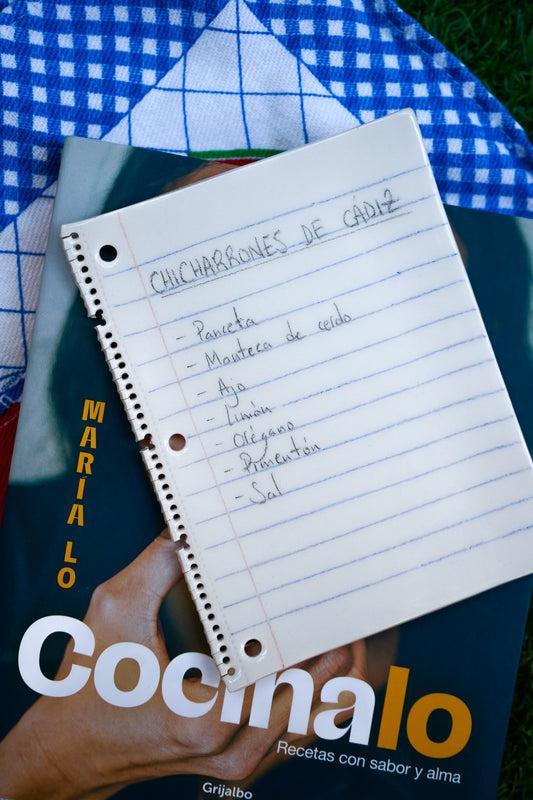 CHICHARRONES DE CÁDIZ
- Panceta
- Manteca de cerdo
- Ajo
- Limón
- Orégano
- Pimentón
- Sal
MARÍA LO
Cocinalo
Recetas con sabor y alma
Grijalbo